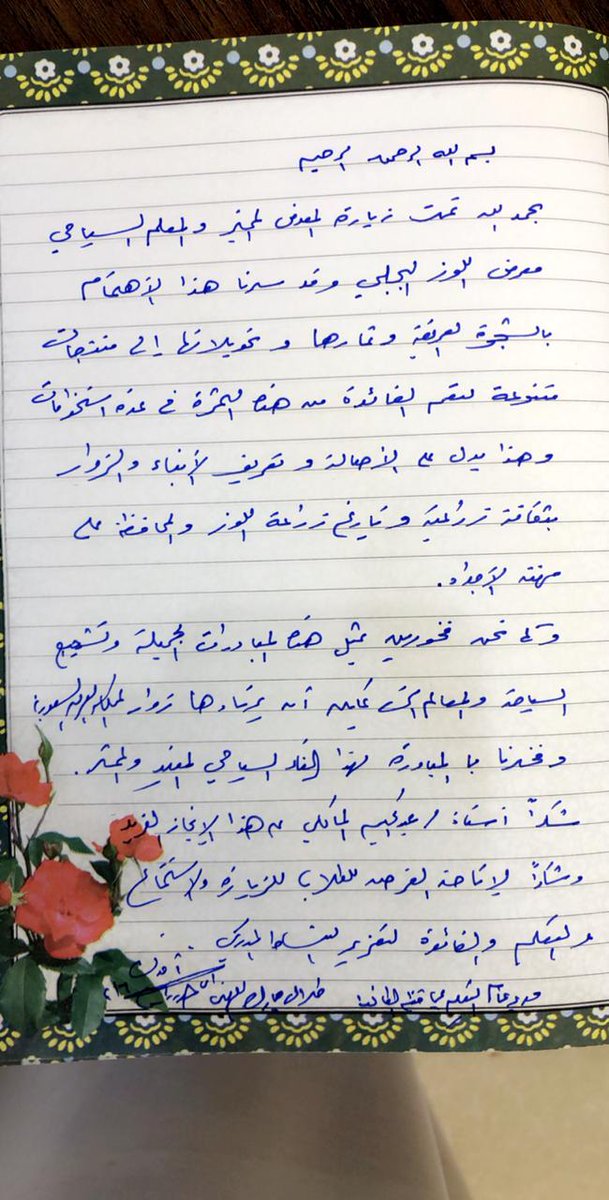 بسم الله الرحمن الرحيم
بحمد الله تمت زيارة المعرض المميز والمعلم السياحي
معرض اللوز البجلي وقد سرنا هذا الاهتمام
بالشجرة العريقة وثمارها وتحويلاتها إلى منتجات
متنوعة لتعم الفائدة من هذه الثمرة في عدة استخدامات
وهذا يدل على الأصالة وتعريف الأبناء والزوار
بثقافة زراعية وتاريخ زراعة اللوز والمحافظة على
مهنة الأجداد.
نحن فخورين بمثل هذه المبادرات الجميلة وتشجيع
السياحة والمعالم التي يمكن أن يرتادها زوار المملكة العربية السعودية
وفخرنا با المبادرة لهذا السياحي المفيد والمميز.
شكراً أستاذ / عبدالحكيم المالكي على هذا الإنجاز الفريد
وشكراً لإتاحة الفرصة للطلاب للزيارة والاستمتاع
والتعلم والفائدة لتعزيز
مدير عام التعليم بمحافظة الطائف طلال